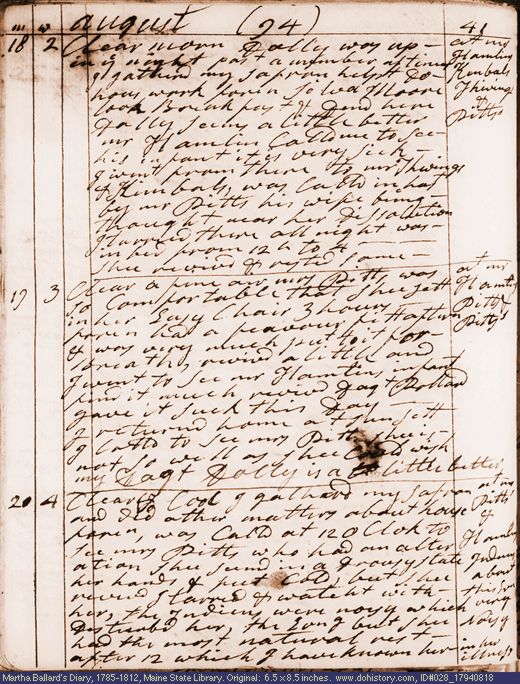 m w august (94) 41
18 2 Clear morn Dolly was up
in ye night past a number of times
I gathered my Safron helpt do
hous work Cousin So Moore
took Breakfast & Dind here
Dolly Seems a little better
mr Hamlin Calld me to See
his infant it is very Sick
I went from there to mr Thwings
& Kimbals, was Calld in hast
by mr Pitts his wife being
thought near her Dissolution
I tarried there all night was
in her from 12 h to 4
Shee revivd & rested Some
at mr
Hamlins
Kimbals
Thwings
&
Pitts
19 3 Clear a fine air mrs Pitt was
So Comportable that Shee Sett
in her Easy Chair 3 hours
foren had a feavour fitt aftern
& was very much put to it for
breath is revivd a little and
I went to See mr Hamlins infant
find it much revivd Dagt Pollard
gave it Suck this Day
I returned home at Sun Sett
I Calld to See mrs Pitts Shee is
not So well as Shee Could wish
my Dagt Dolly is a little better
at mr
Hamlins
Pitts &
Pitts's
20 4 Clear & Cool I gatherd my Safron
and did other matters about house
foren was Calld at 12 O Clok to
See mrs Pitts who had an alter
ation Shee Seemd in a Drousy State
her hands & feet Cold, but Shee
revivd I tarred & watcht with
her, the Indiens were noisy which
Disturbd her, the Eving but Shee
had the most natural rest
after 12 which I have known her
at mr
Pitts
&
Hamlins
Indians
about
this Town
very
Noisy
in her
illness
Martha Ballard's Diary, 1785-1812, Maine State Library. Original: 6.5 x 8.5 inches. www.dohistory.com, ID#028_17940818